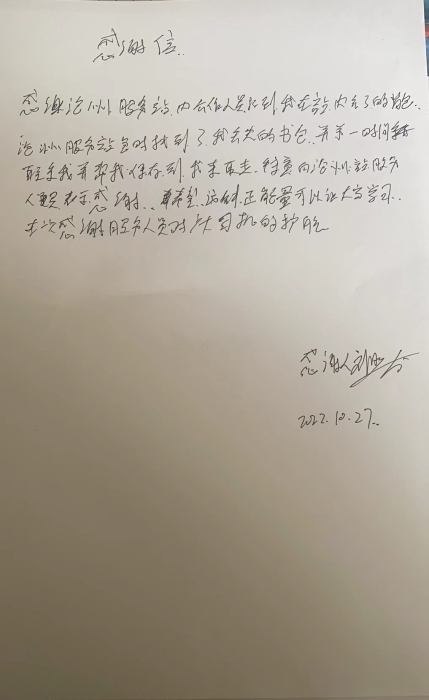 感谢信.
感谢沧州服务站内工作人员记到我在站内丢了的书包.
沧州服务站当时找到了我丢失的书包.并第一时间
联系我并帮我保存到我来取走.特意向沧州站服务
人员表示感谢.希望这种正能量可以让大家学习.
在次感谢服务人员对大司机的护航
感谢人刘
2022.10.27.